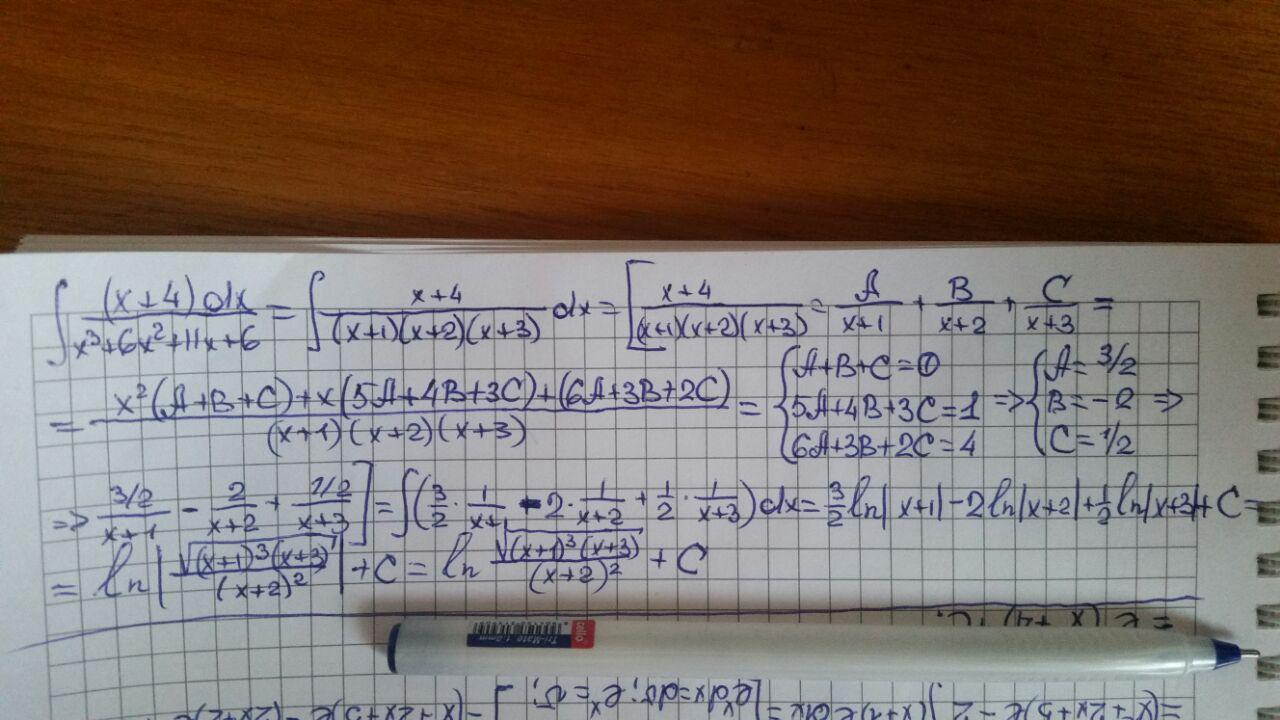 ∫ (x+4)dx / (x³+6x²+11x+6) = ∫ (x+4) / ((x+1)(x+2)(x+3)) dx = [ (x+4) / ((x+1)(x+2)(x+3)) = A/(x+1) + B/(x+2) + C/(x+3) =
= (x²(A+B+C)+x(5A+4B+3C)+(6A+3B+2C)) / ((x+1)(x+2)(x+3)) = { A+B+C=0 ; 5A+4B+3C=1 ; 6A+3B+2C=4 => { A=3/2 ; B=-2 ; C=1/2 =>
=> (3/2)/(x+1) - 2/(x+2) + (1/2)/(x+3) ] = ∫(3/2 · 1/(x+1) - 2 · 1/(x+2) + 1/2 · 1/(x+3))dx = 3/2 ln|x+1| - 2ln|x+2| + 1/2 ln|x+3| + C =
= ln| √((x+1)³(x+3)) / (x+2)² | + C = ln √((x+1)³(x+3)) / (x+2)² + C
cello
Tri-Mate 1.0mm